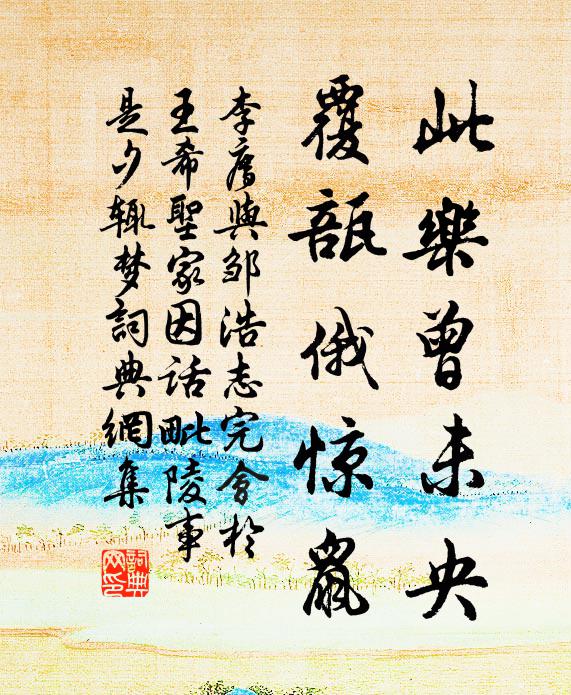 此樂曾未央
覆瓿俄惊鼠
李廌與邹浩志完會於
王希聖家因话毗陵事
是夕辄梦詞典網集
詞典网印